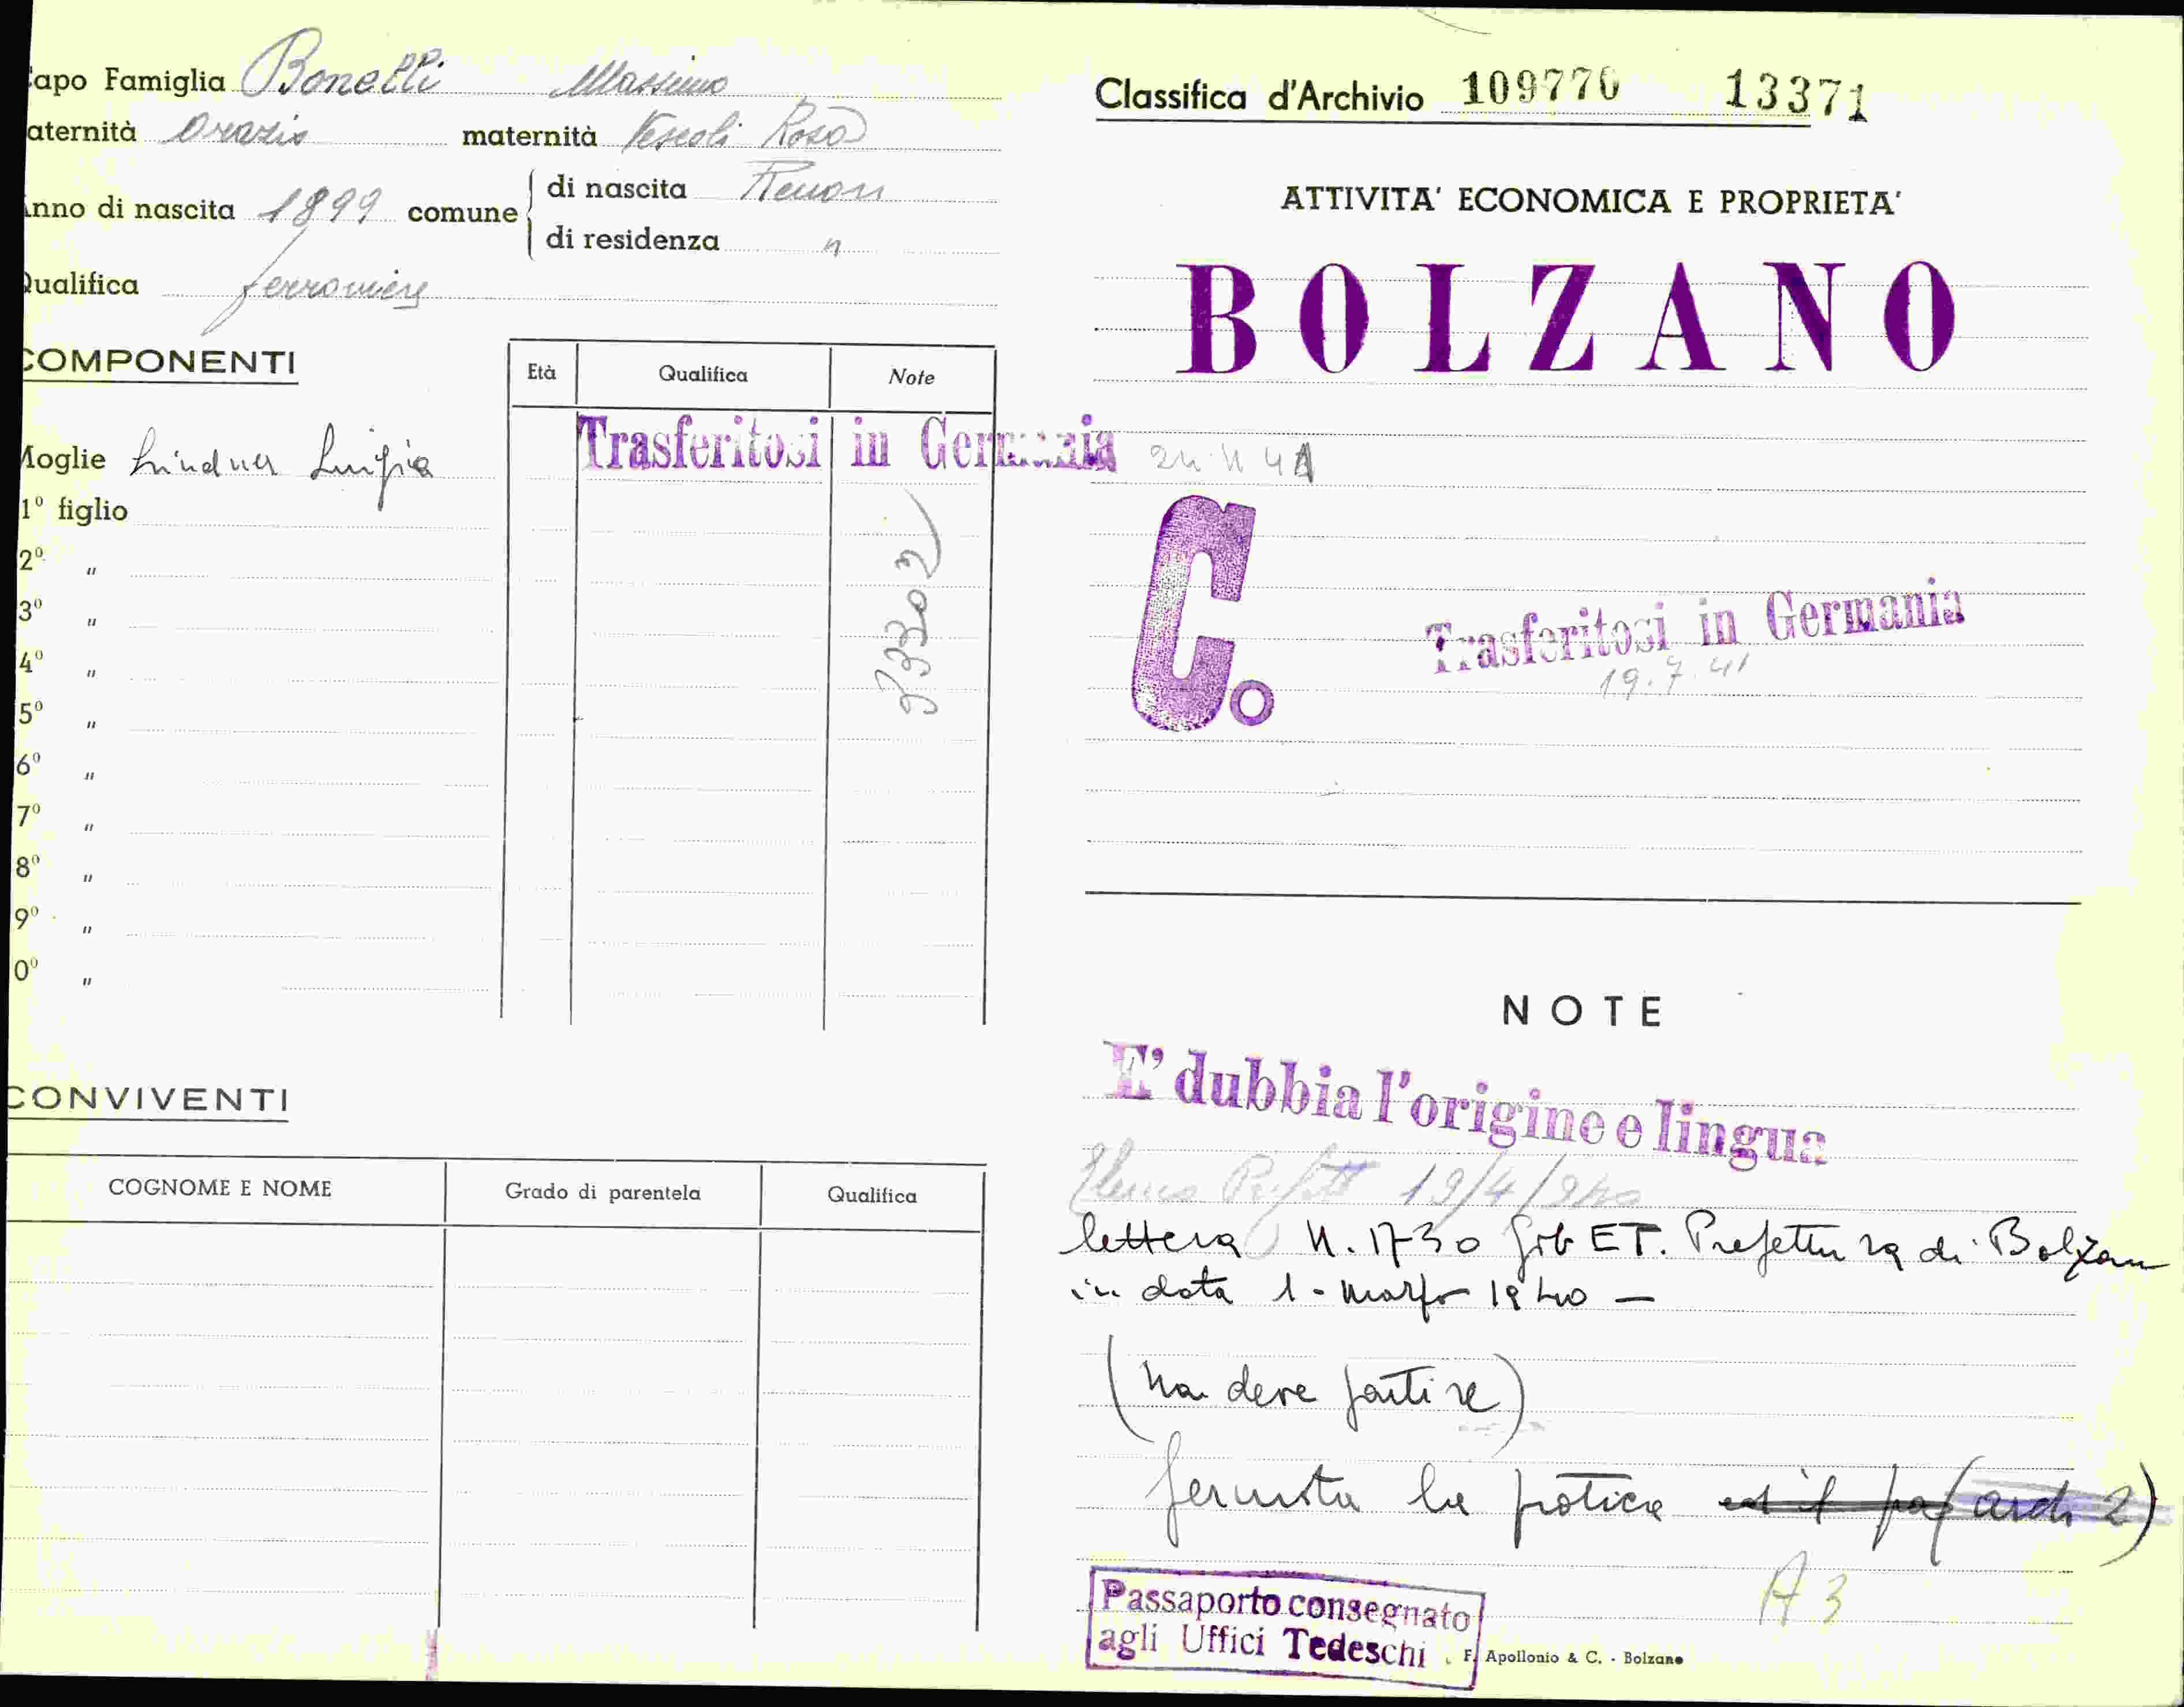 Capo Famiglia Bonelli Massimo
aternità Orazio maternità Vescoli Rosa
Anno di nascita 1899 comune di nascita Renon
di residenza "
Qualifica ferroviere
COMPONENTI
Età Qualifica Note
Moglie Lindner Luigia
Trasferitosi in Germania
1º figlio
2º "
3º "
4º "
5º "
6º "
7º "
8º "
9º "
0º "
33302
CONVIVENTI
COGNOME E NOME Grado di parentela Qualifica
Classifica d'Archivio 109770 13371
ATTIVITA' ECONOMICA E PROPRIETA'
BOLZANO
C.
Trasferitosi in Germania
19.7.41
NOTE
E' dubbia l'origine e lingua
19/4/940
lettera N. 1730 Gab ET. Prefettura di Bolzan
in data 1 - marzo 1940 —
(non deve partire)
fermata la pratica
A 3
Passaporto consegnato
agli Uffici Tedeschi
F. Apollonio & C. - Bolzano